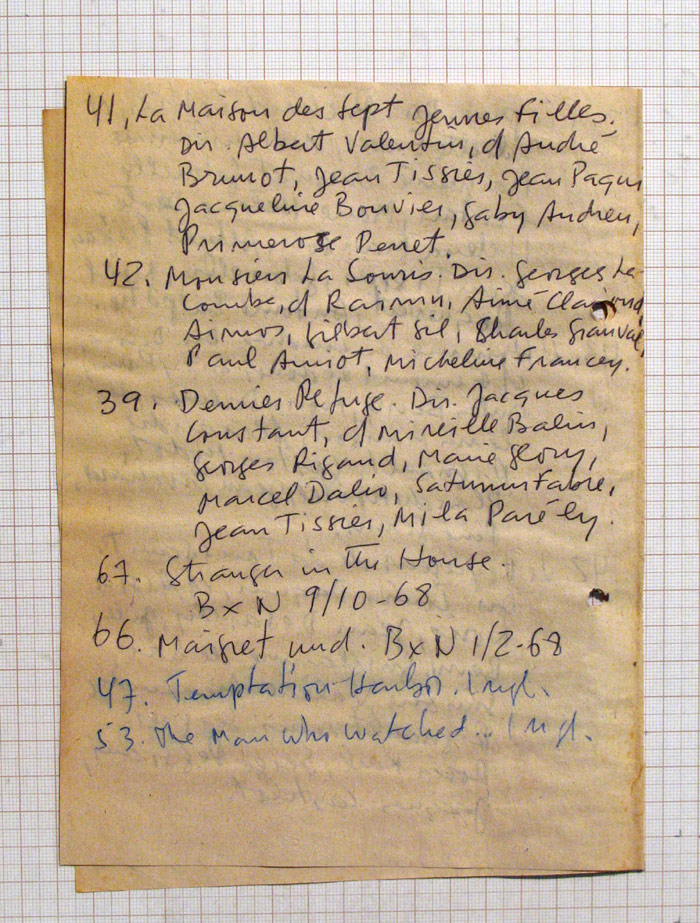 41, La Maison des Sept Jeunes Filles.
Dir. Albert Valentin, d André
Brunot, Jean Tissier, Jean Paqui
Jacqueline Bouvier, Gaby Andreu,
Primerose Perret.
42. Monsieur La Souris. Dir. Georges La-
Combe, d Raimu, Aimé Clariond,
Aimos, Gilbert Gil, Charles Granval,
Paul Amiot, Micheline Francey.
39. Dernier Refuge. Dir. Jacques
Constant, d Mireille Balin,
Georges Rigaud, Marie Glory,
Marcel Dalio, Saturnin Fabre,
Jean Tissier, Mila Parély.
67. Stranger in the House.
B x N 9/10-68
66. Maigret und. B x N 1/2-68
47. Temptation Harbor. Ingl.
53. The Man who watched... Ingl.